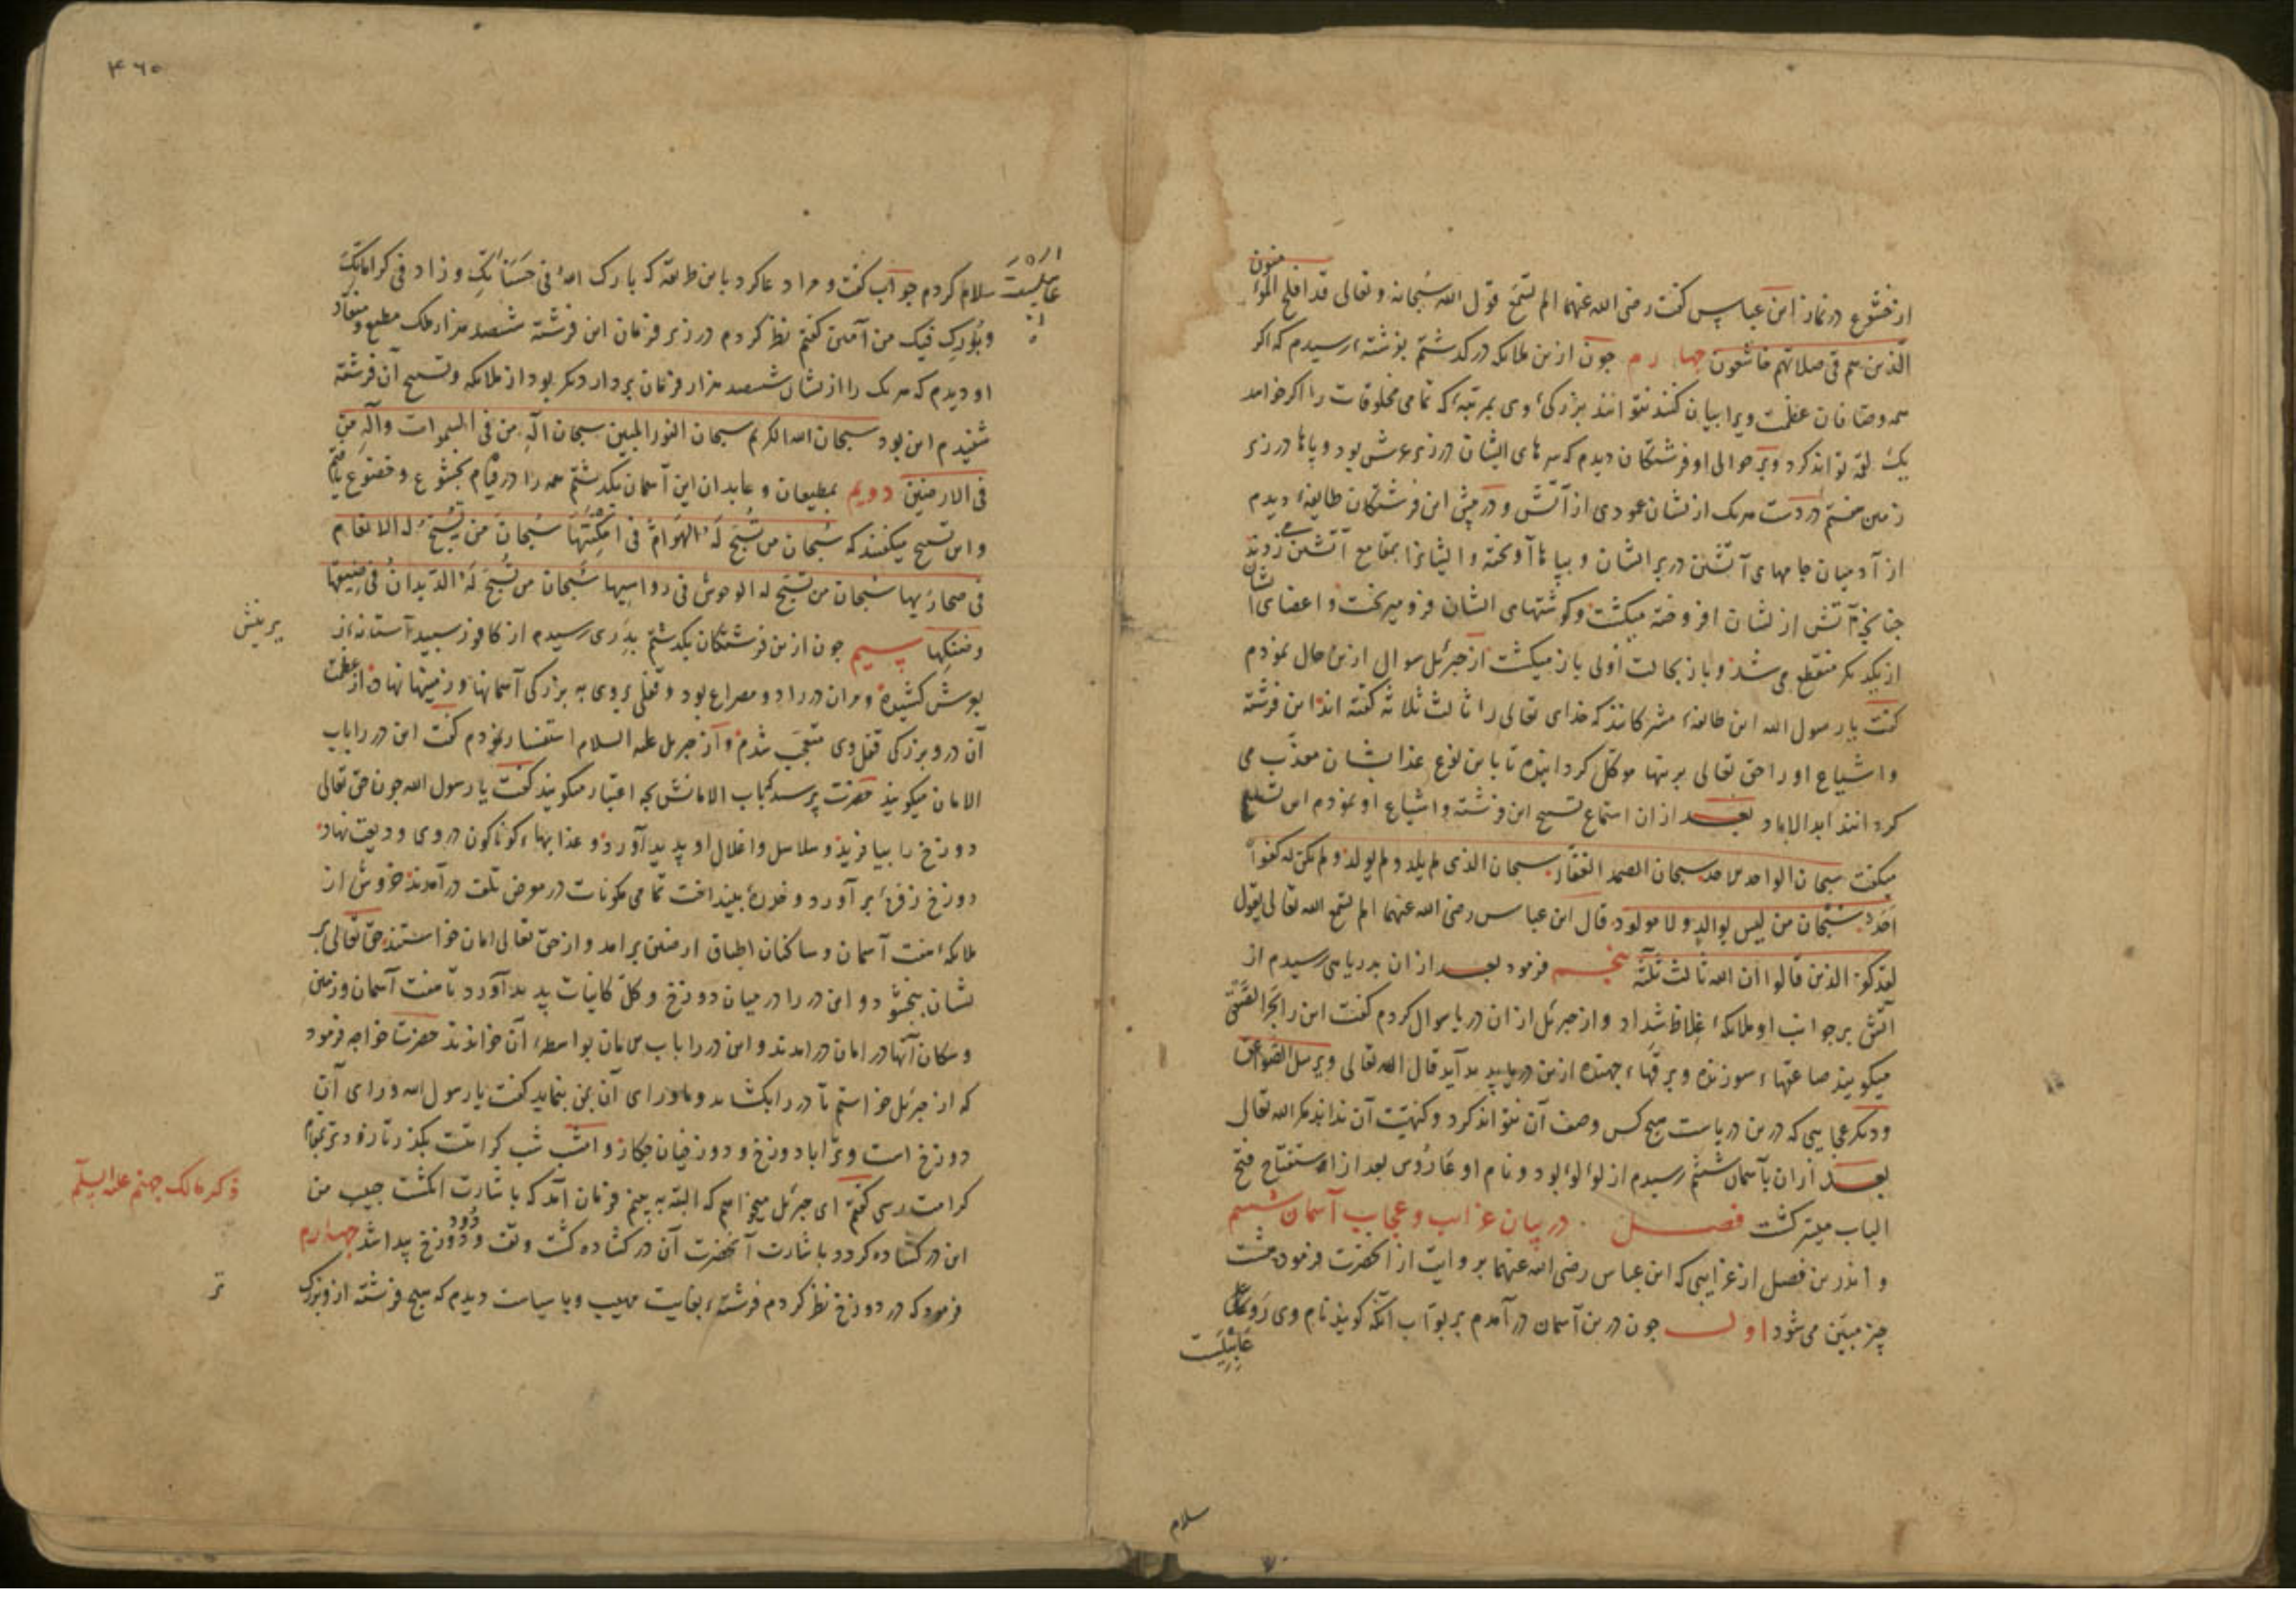 از خشوع در نماز ابن عباس گفت رضی الله عنهما الم تسمع قول الله سبحانه و تعالی قد افلح المؤمنون
الذین هم فی صلاتهم خاشعون چهارم چون ازین ملائکه درگذشتم بفرشته رسیدم که اگر
همه وصافان عظمت ویرا بیان کنند نتوانند بزرگی وی بمرتبه که تمامی مخلوقات را اگر خواهد
یک لقمه تواند کرد و بر حوالی او فرشتگان دیدم که سرهای ایشان در زیر عرش بود و پاها در زیر
زمین هفتم در دست هر یک ازیشان عمودی از آتش و در پیش این فرشتگان طایفه دیدم
از آدمیان جامهای آتشین در بر ایشان و بپاها آویخته و ایشانرا بمقامع آتشین می زدند
چنانچه آتش ازیشان افروخته میگشت و گوشتهای ایشان فرو میریخت و اعضای ایشان
از یکدیگر منقطع می شد و باز بحالت اولی باز میگشت از جبرئیل سوال ازین حال نمودم
گفت یا رسول الله این طایفه مشرکانند که خدای تعالی را ثالث ثلاثه گفته اند این فرشته
و اشیاع او را حق تعالی برینها موکل گردانیده تا باین نوع عذاب ایشان معذب می
گردانند ابد الاباد بعد ازان استماع تسبیح این فرشته و اشیاع او نمودم این تسبیح
میگفت سبحان الواحد الاحد سبحان الصمد الغفار سبحان الذی لم یلد و لم یولد و لم یکن له کفوا
احد سبحان من لیس بوالد ولا مولود قال ابن عباس رضی الله عنهما الم تسمع الله تعالی یقول
لقد کفر الذین قالوا ان الله ثالث ثلثة پنجم فرمود بعد ازان بدریایی رسیدم از
آتش بر جوانب او ملائکه غلاظ شداد و از جبرئیل ازان دریا سوال کردم گفت این را بحر الصعق
میگویند صاعقهاء سوزنده و برقهاء جهنده ازین دریا پدید آید قال الله تعالی و یرسل الصواعق
و دیگر عجایبی که درین دریاست هیچ کس وصف آن نتواند کرد و کنهیت آن نداند مگر الله تعالی
بعد ازان بآسمان ششم رسیدم از لؤلؤ بود و نام او عاروس بعد از استفتاح فتح
الباب میسر گشت فصل در بیان غرایب و عجایب آسمان ششم
و اندرین فصل از غرایبی که ابن عباس رضی الله عنهما بروایت از آنحضرت فرمود هشت
چیز مبین می شود اول چون درین آسمان درآمدم بر بواب آنکه گویند نام وی
سلام
۴۶۰
سلام کردم جواب گفت و مرا دعا کرد باین طریقه که بارک الله فی حسناتک و زاد فی کراماتک
و بورک فیک من آمین گفتم نظر کردم در زیر فرمان این فرشته ششصد هزار ملک مطیع و منقاد
او دیدم که هر یک را ازیشان ششصد هزار فرمان بردار دیگر بود از ملائکه و تسبیح آن فرشته
شنیدم این بود سبحان الله الکریم سبحان النور المبین سبحان اله من فی السموات و اله من
فی الارضین دویم بمطیعان و عابدان این آسمان بگذشتم همه را در قیام بخشوع و خضوع یافتم
و این تسبیح میگفتند که سبحان من تسبح له الهوام فی امکنتها سبحان من تسبح له الانعام
فی صحاریها سبحان من تسبح له الوحوش فی رواسیها سبحان من تسبح له الدیدان فی ضیقها
وضنکها سیم چون ازین فرشتگان بگذشتم بدری رسیدم از کافور سپید آستانه اش
بعرش کشیده و مران در را دو مصراع بود و قفلی بروی به بزرگی آسمانها و زمینها نهاده از عظمت
آن در و بزرگی قفل وی متعجب شدم و از جبریل علیه السلام استفسار نمودم گفت این در را باب
الامان میگویند حضرت پرسید که باب الامانش بچه اعتبار میگویند گفت یا رسول الله چون حق تعالی
دوزخ را بیافرید و سلاسل و اغلال او پدید آورد و عذابهاء گوناگون در وی ودیعت نهاد
دوزخ زفره برآورد و بینداخت تمامی مکونات در معرض تلف درآمدند خروش از
ملائکه هفت آسمان و ساکنان اطباق ارضین برآمد و از حق تعالی امان خواستند حق تعالی بر
یشان ببخشود و این در را در میان دوزخ و کل کاینات پدید آورد تا هفت آسمان و زمین
و سکان آنها در امان درامدند و این در را باب الامان بواسطه آن خواندند حضرت خواجه فرمود
که از جبرئیل خواستم تا در را بکشاید و ماورای آن بمن بنماید گفت یا رسول الله ورای آن
دوزخ است و ترا با دوزخ و دوزخیان چکار و امشب شب کرامتست بگذر تا زودتر بمقام
کرامت رسی گفتم ای جبرئیل میخواهم که البته ببینم فرمان آمد که باشارت انگشت حبیب من
این در گشاده گردد باشارت آنحضرت آن در گشاده گشت و تف و دود دوزخ پیدا شد چهارم
فرمود که در دوزخ نظر کردم فرشته بغایت مهیب و با سیاست دیدم که هیچ فرشته ازو بزرگ
تر
ذکر مالک جهنم علیه السلام